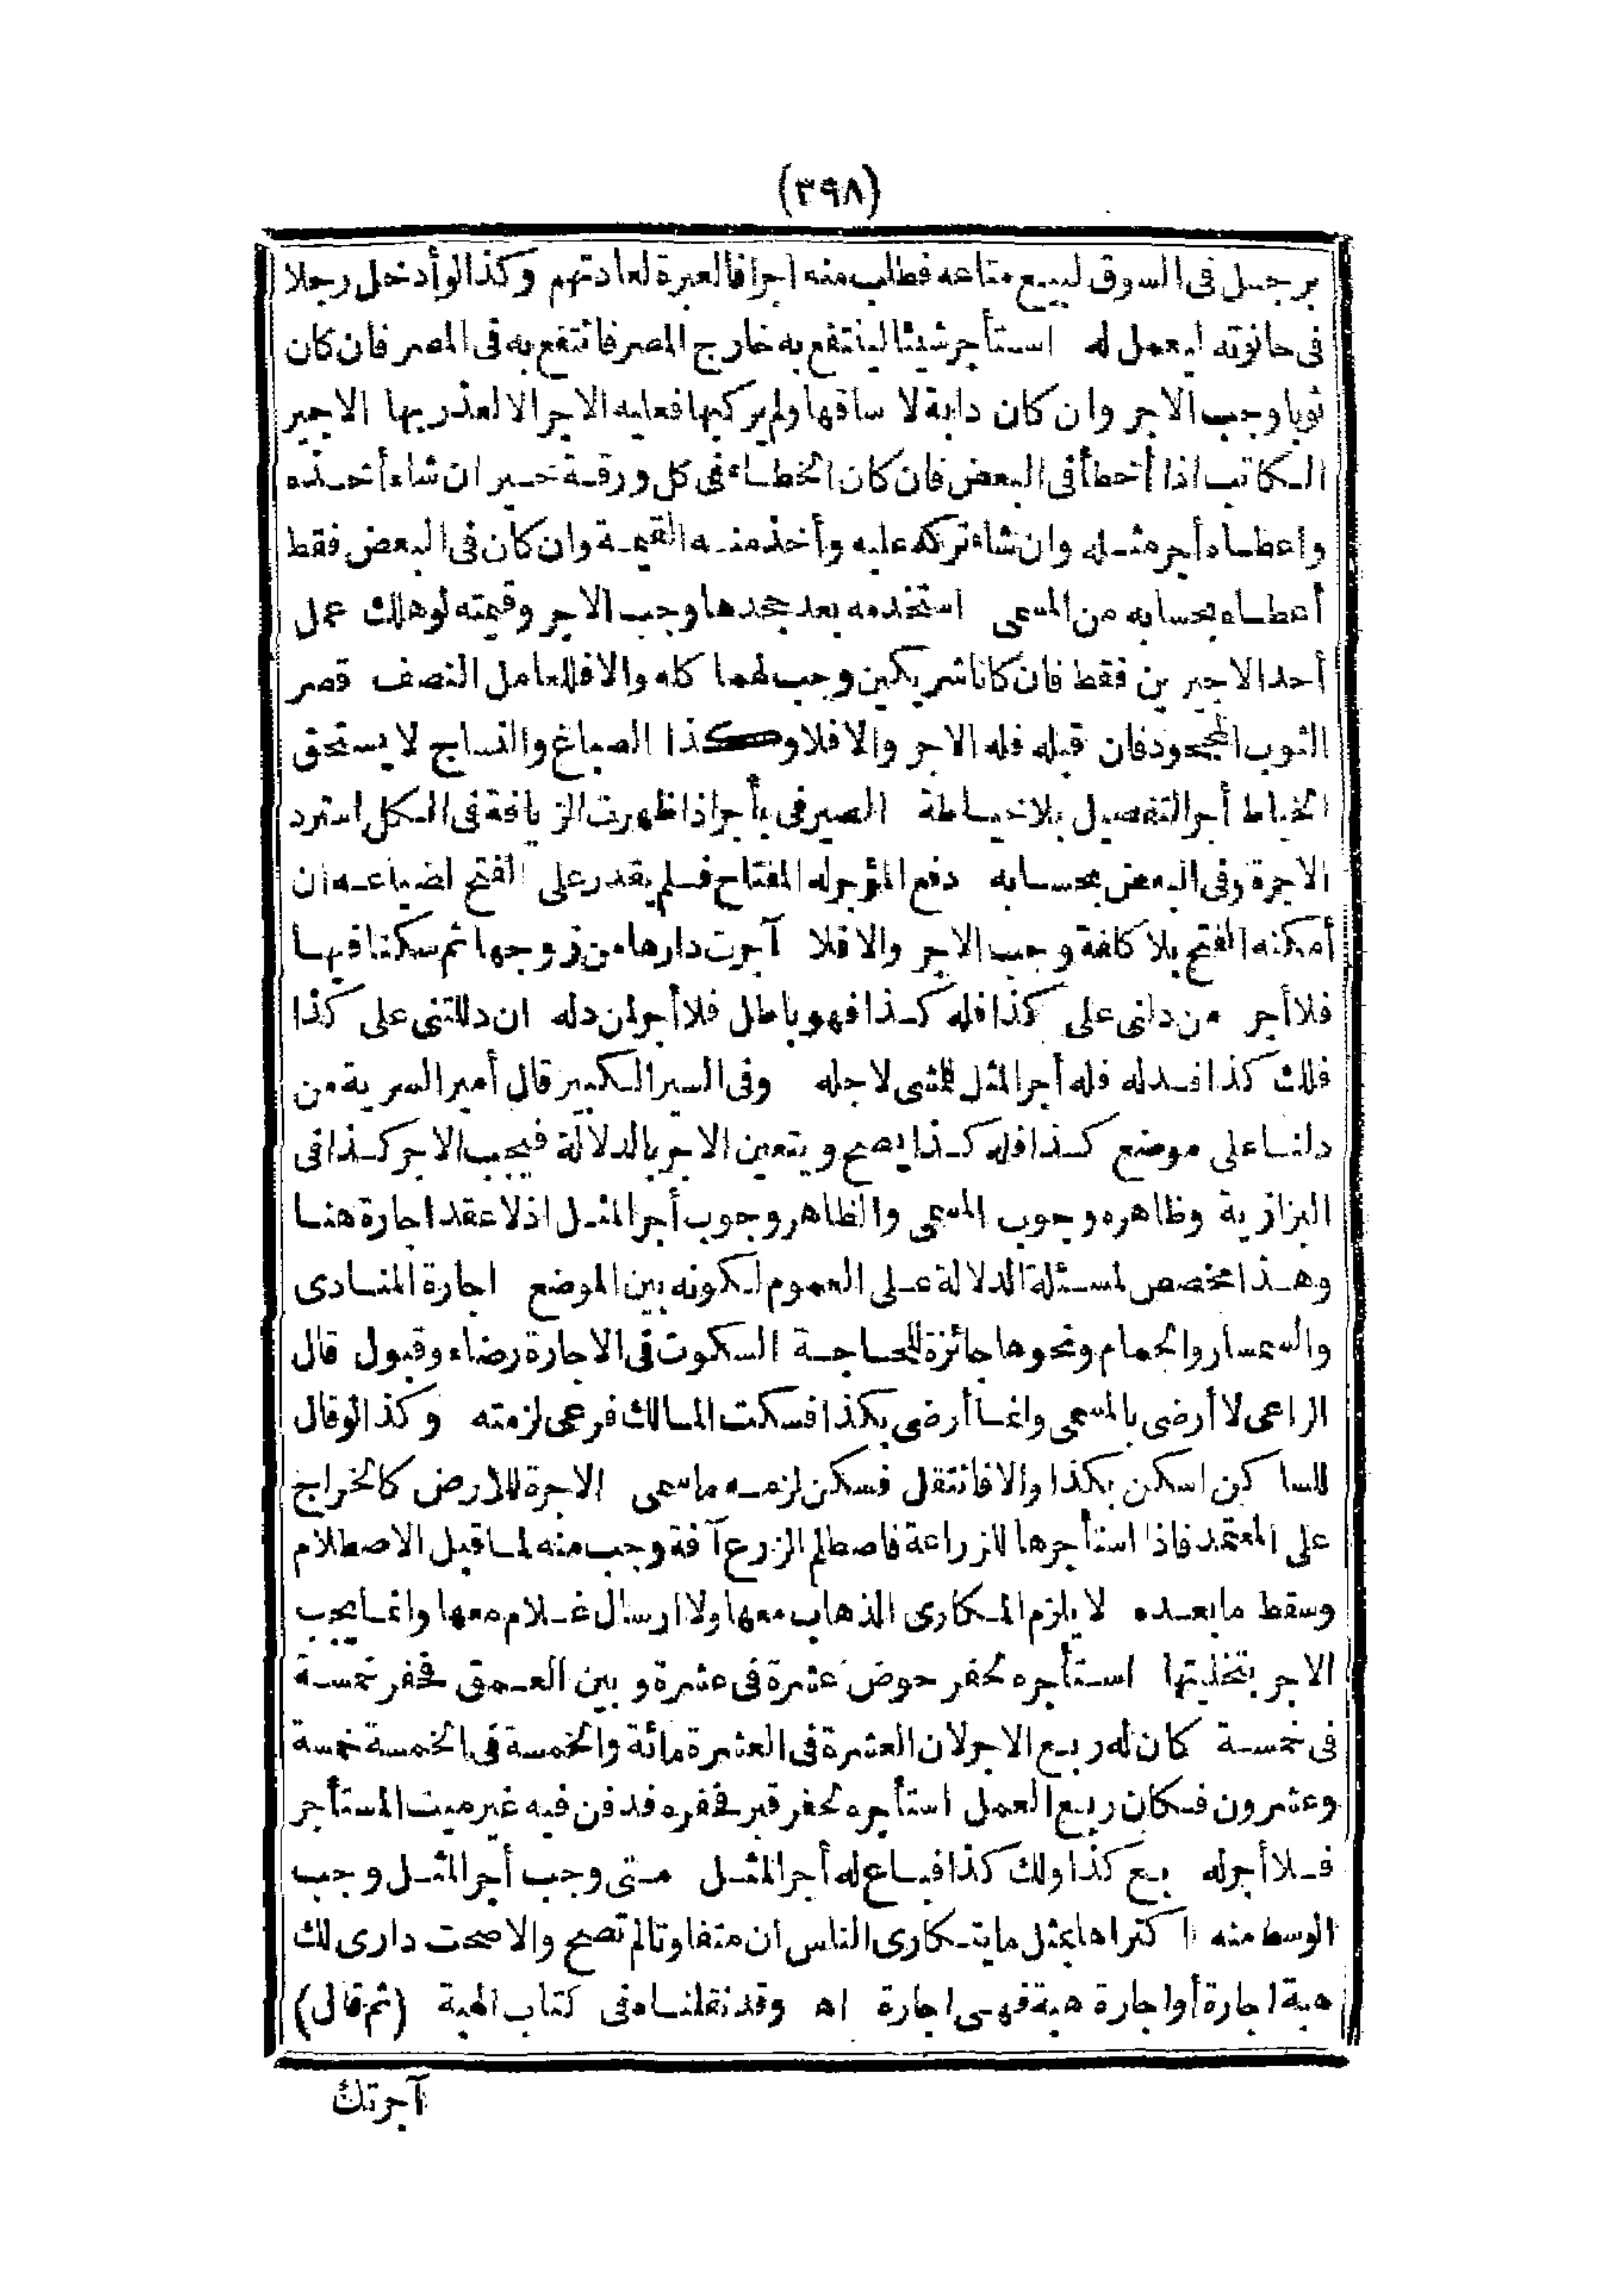 (٣٩٨)
برجل فى السوق ليبيع متاعه فطلب منه اجرا فالعبرة لعادتهم وكذا لو أدخل رجلا
فى حانوته ليعمل له استأجر شيئا لينتفع به خارج المصر فانتفع به فى المصر فان كان
ثوبا وجب الاجر وان كان دابة لا ساقها ولم يركبها فعليه الاجر الا لعذر بها الاجير
الكاتب اذا أخطأ فى البعض فان كان الخطاء فى كل ورقة خير ان شاء أخذه
واعطاه أجر مثله وان شاء تركه عليه وأخذ منه القيمة وان كان فى البعض فقط
أعطاه بحسابه من المسمى استخدمه بعد جحدها وجب الاجر وقيمته لو هلك عمل
أحد الاجيرين فقط فان كانا شريكين وجب لهما كله والا فللعامل النصف قصر
الثوب المجحود فان قبله فله الاجر والا فلا وكذا الصباغ والنساج لا يستحق
الخياط أجر التفصيل بلا خياطة الصيرفى بأجر اذا ظهرت الزيافة فى الكل استرد
الاجرة وفى البعض بحسابه دفع المؤجر له المفتاح فلم يقدر على الفتح لضياعه ان
أمكنه الفتح بلا كلفة وجب الاجر والا فلا آجرت دارها من زوجها ثم سكنا فيها
فلا أجر من دلنى على كذا فله كذا فهو باطل فلا أجر لمن دله ان دللتنى على كذا
فلك كذا فدله فله أجر المثل للمشى لاجله وفى السير الكبير قال أمير السرية من
دلنا على موضع كذا فله كذا يصح ويتعين الاجر بالدلالة فيجب الاجر كذا فى
البزازية وظاهره وجوب المسمى والظاهر وجوب أجر المثل اذ لا عقد اجارة هنا
وهذا مخصص لمسئلة الدلالة على العموم لكونه بين الموضع اجارة المنادى
والسمسار والحمام ونحوها جائزة للحاجة السكوت فى الاجارة رضاء وقبول قال
الراعى لا أرضى بالمسمى وانما أرضى بكذا فسكت المالك فرعى لزمته وكذا لو قال
للساكن اسكن بكذا والا فانتقل فسكن لزمه ما سمى الاجرة للارض كالخراج
على المعتمد فاذا استأجرها للزراعة فاصطلم الزرع آفة وجب منه لما قبل الاصطلام
وسقط ما بعده لا يلزم المكارى الذهاب معها ولا ارسال غلام معها وانما يجب
الاجر بتخليتها استأجره لحفر حوض عشرة فى عشرة وبين العمق فحفر خمسة
فى خمسة كان له ربع الاجر لان العشرة فى العشرة مائة والخمسة فى الخمسة خمسة
وعشرون فكان ربع العمل استأجره لحفر قبر فحفره فدفن فيه غير ميت المستأجر
فلا أجر له بع كذا ولك كذا فباع له أجر المثل متى وجب أجر المثل وجب
الوسط منه اكتراها بمثل ما يتكارى الناس ان متفاوتا لم تصح والا صحت دارى لك
هبة اجارة أو اجارة هبة فهى اجارة اه وقد نقلناه فى كتاب الهبة (ثم قال)
آجرتك